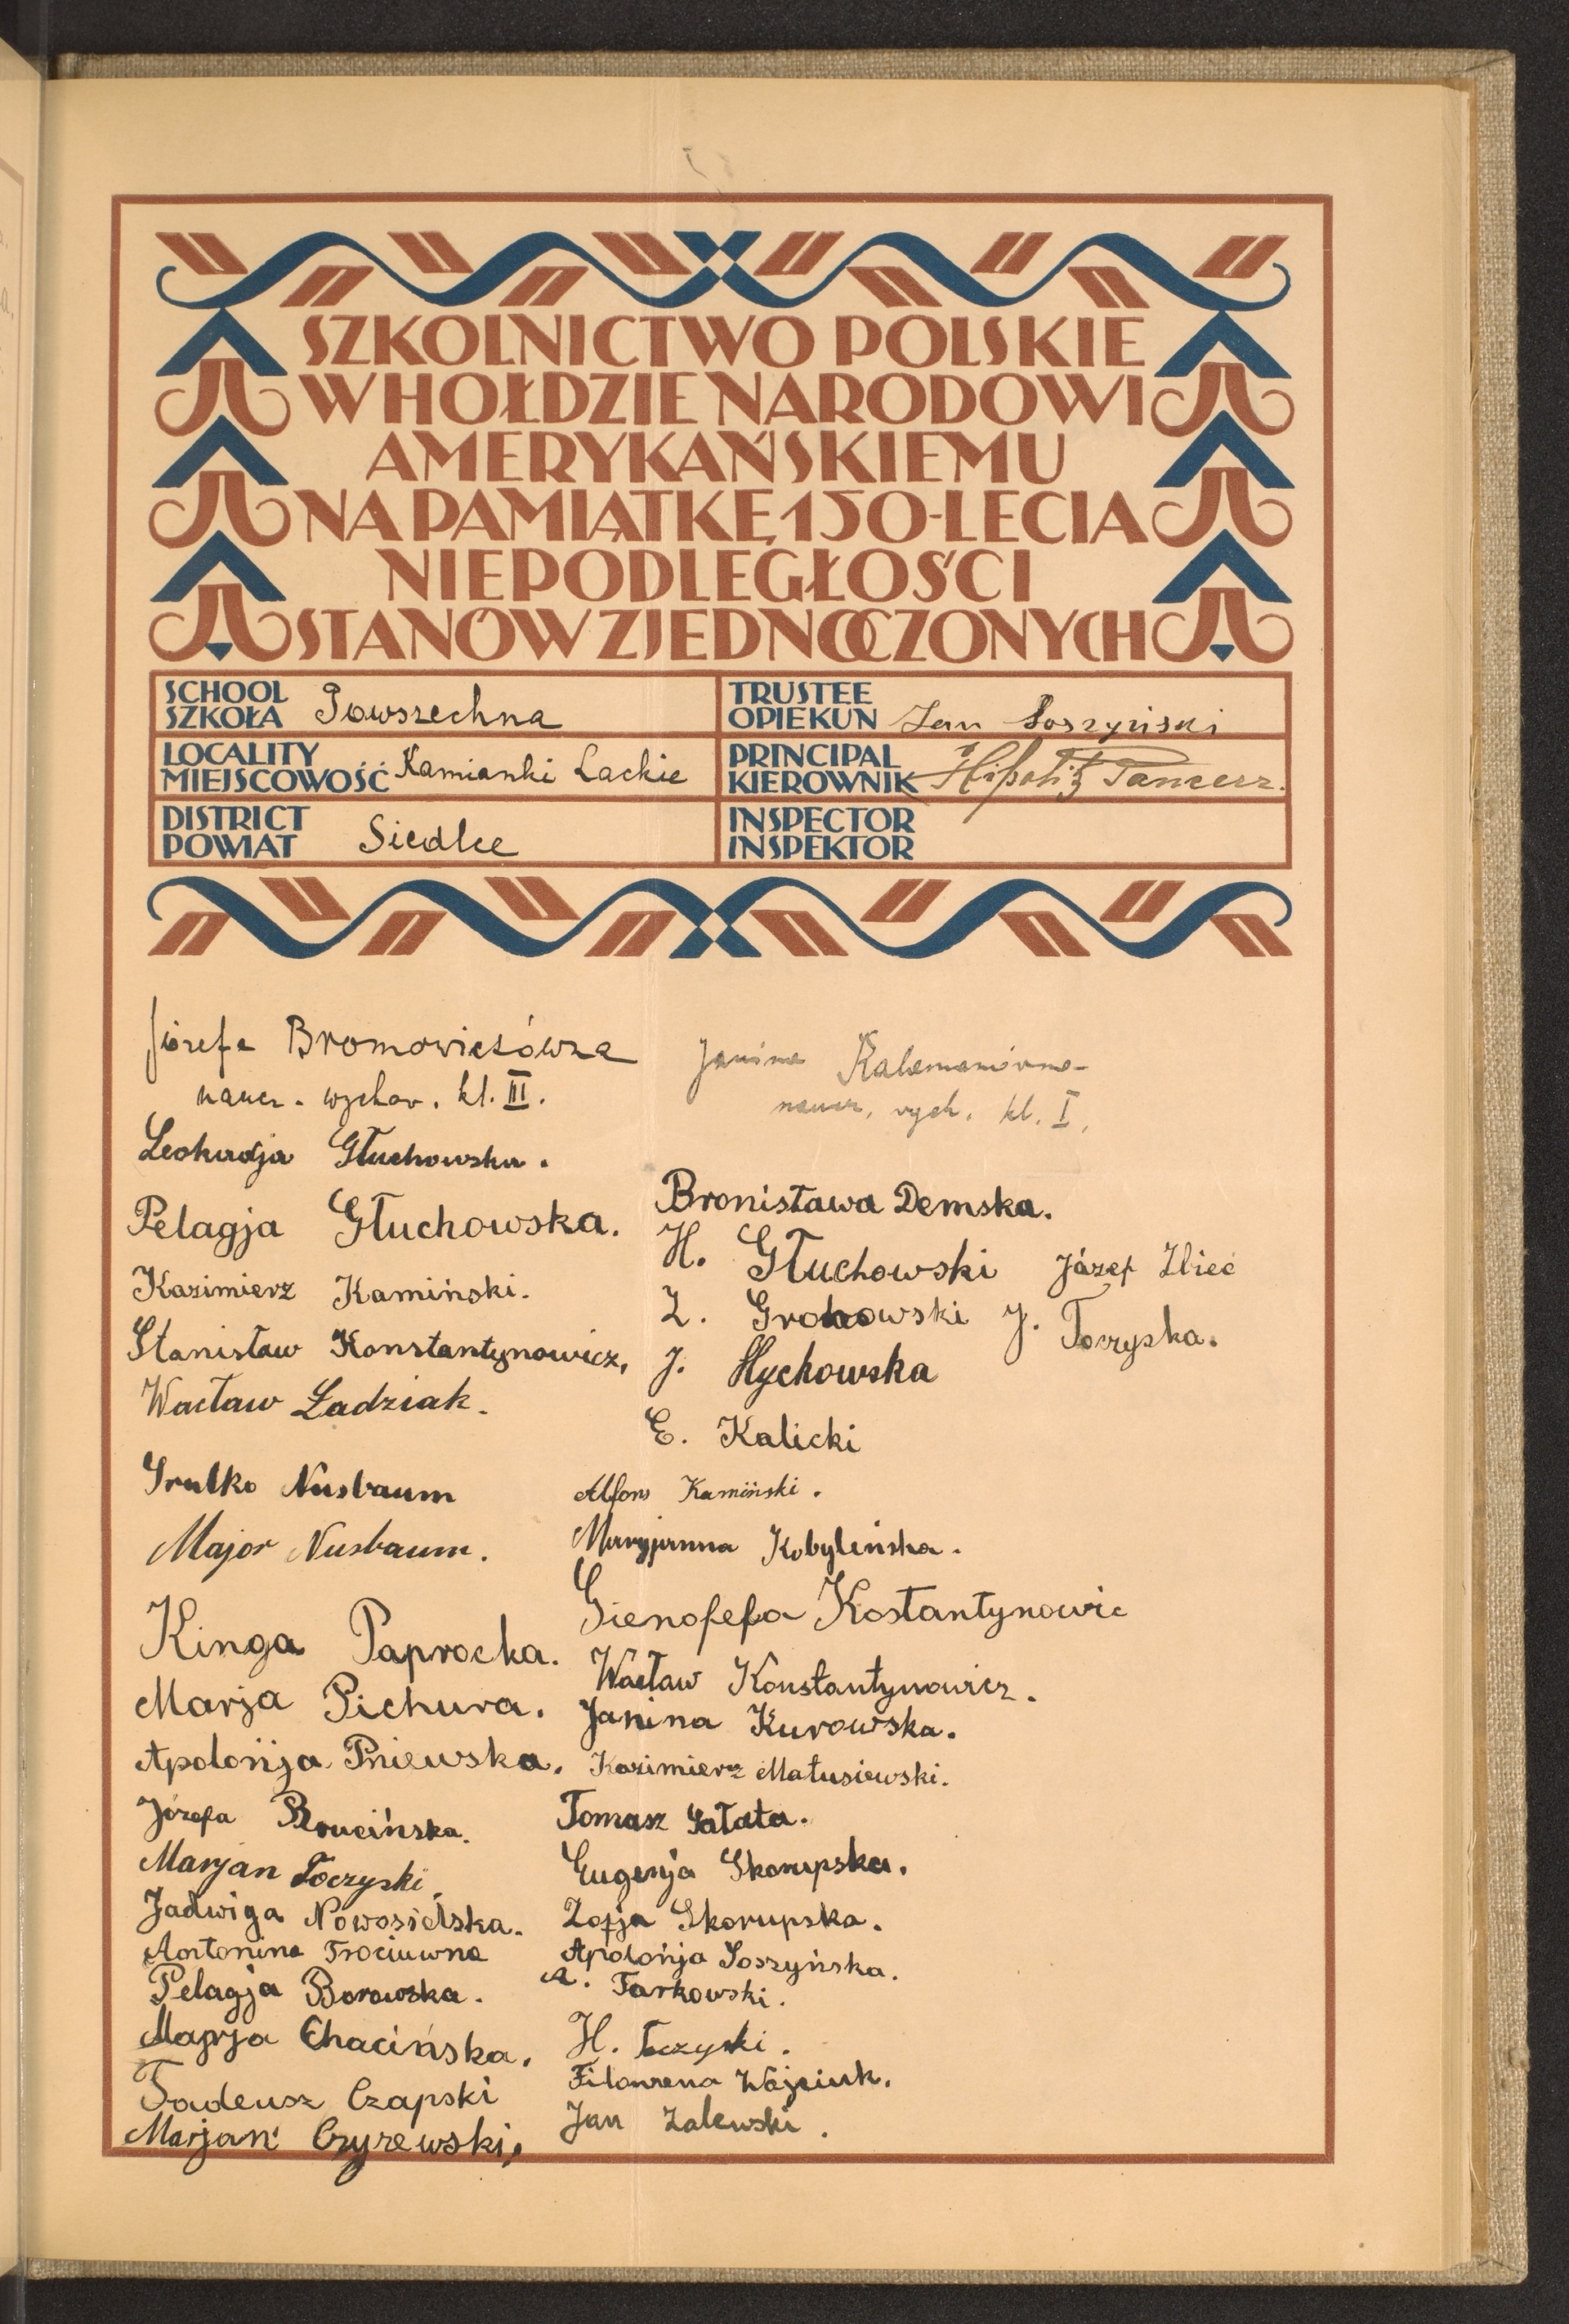 SZKOLNICTWO POLSKIE
W HOŁDZIE NARODOWI
AMERYKAŃSKIEMU
NA PAMIĄTKĘ 150-LECIA
NIEPODLEGŁOŚCI
STANÓW ZJEDNOCZONYCH
SCHOOL
SZKOŁA Powszechna
TRUSTEE
OPIEKUN Jan Soszyński
LOCALITY
MIEJSCOWOŚĆ Kamianki Lackie
PRINCIPAL
KIEROWNIK Hipolit Pancerz.
DISTRICT
POWIAT Siedlce
INSPECTOR
INSPEKTOR
Józefa Bromowiczówna
naucz. wychow. kl. III.
Leokadja Głuchowska.
Pelagja Głuchowska.
Kazimierz Kamiński.
Stanisław Konstantynowicz,
Wacław Ładziak.
Srulko Nusbaum
Major Nusbaum.
Kinga Paprocka.
Marja Pichura.
Apolońja Pniewska.
Józefa
Marjan Toczyski,
Jadwiga Nowosielska.
Antonina Trociuwna
Pelagja Borowska.
Marja Chacińska.
Tadeusz Czapski
Marjan Czyżewski,
Janina Kalemanówna
naucz. wych. kl. I,
Bronisława Demska.
H. Głuchowski
Z. Grochowski
J. Hychowska
E. Kalicki
Alfons Kamiński.
Maryjanna Kobylińska.
Gienofefa Kostantynowic
Wacław Konstantynowicz.
Janina Kurowska.
Kazimierz Matusiewski.
Tomasz Sałata.
Eugenja Skorupska.
Zofja Skorupska.
Apolońja Soszyńska.
A. Tarkowski.
H. Toczyski.
Filomena Wójciuk.
Jan Zalewski.
Józef Zbieć
J. Toczyska.